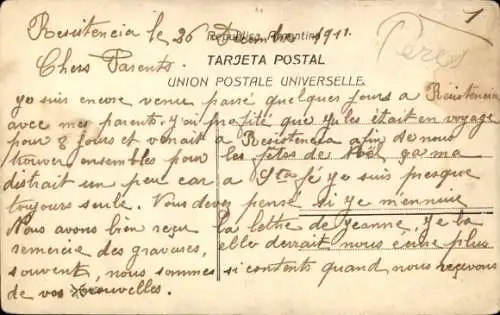 Resistencia le 26 Decembre 1911.
Republica Argentina
Peres
1
Chers Parents.
TARJETA POSTAL
UNION POSTALE UNIVERSELLE
ye suis encore venue passé quelques jours a Resistencia
avec mes parents. y'ai profité que yules était en voyage
pour 8 jours et venait a Resistencia afin de nous
trouver ensembles pour les fêtes de Noël ça ma
distrait un peu car a Sta fé ye suis presque
toujours seule. Vous devez pensé si ye m'ennuie
Nous avons bien reçu la lettre de yeanne, ye la
remercie des gravures, elle devrait nous écrire plus
souvent, nous sommes si contents quand nous reçevons
de vos nouvelles.